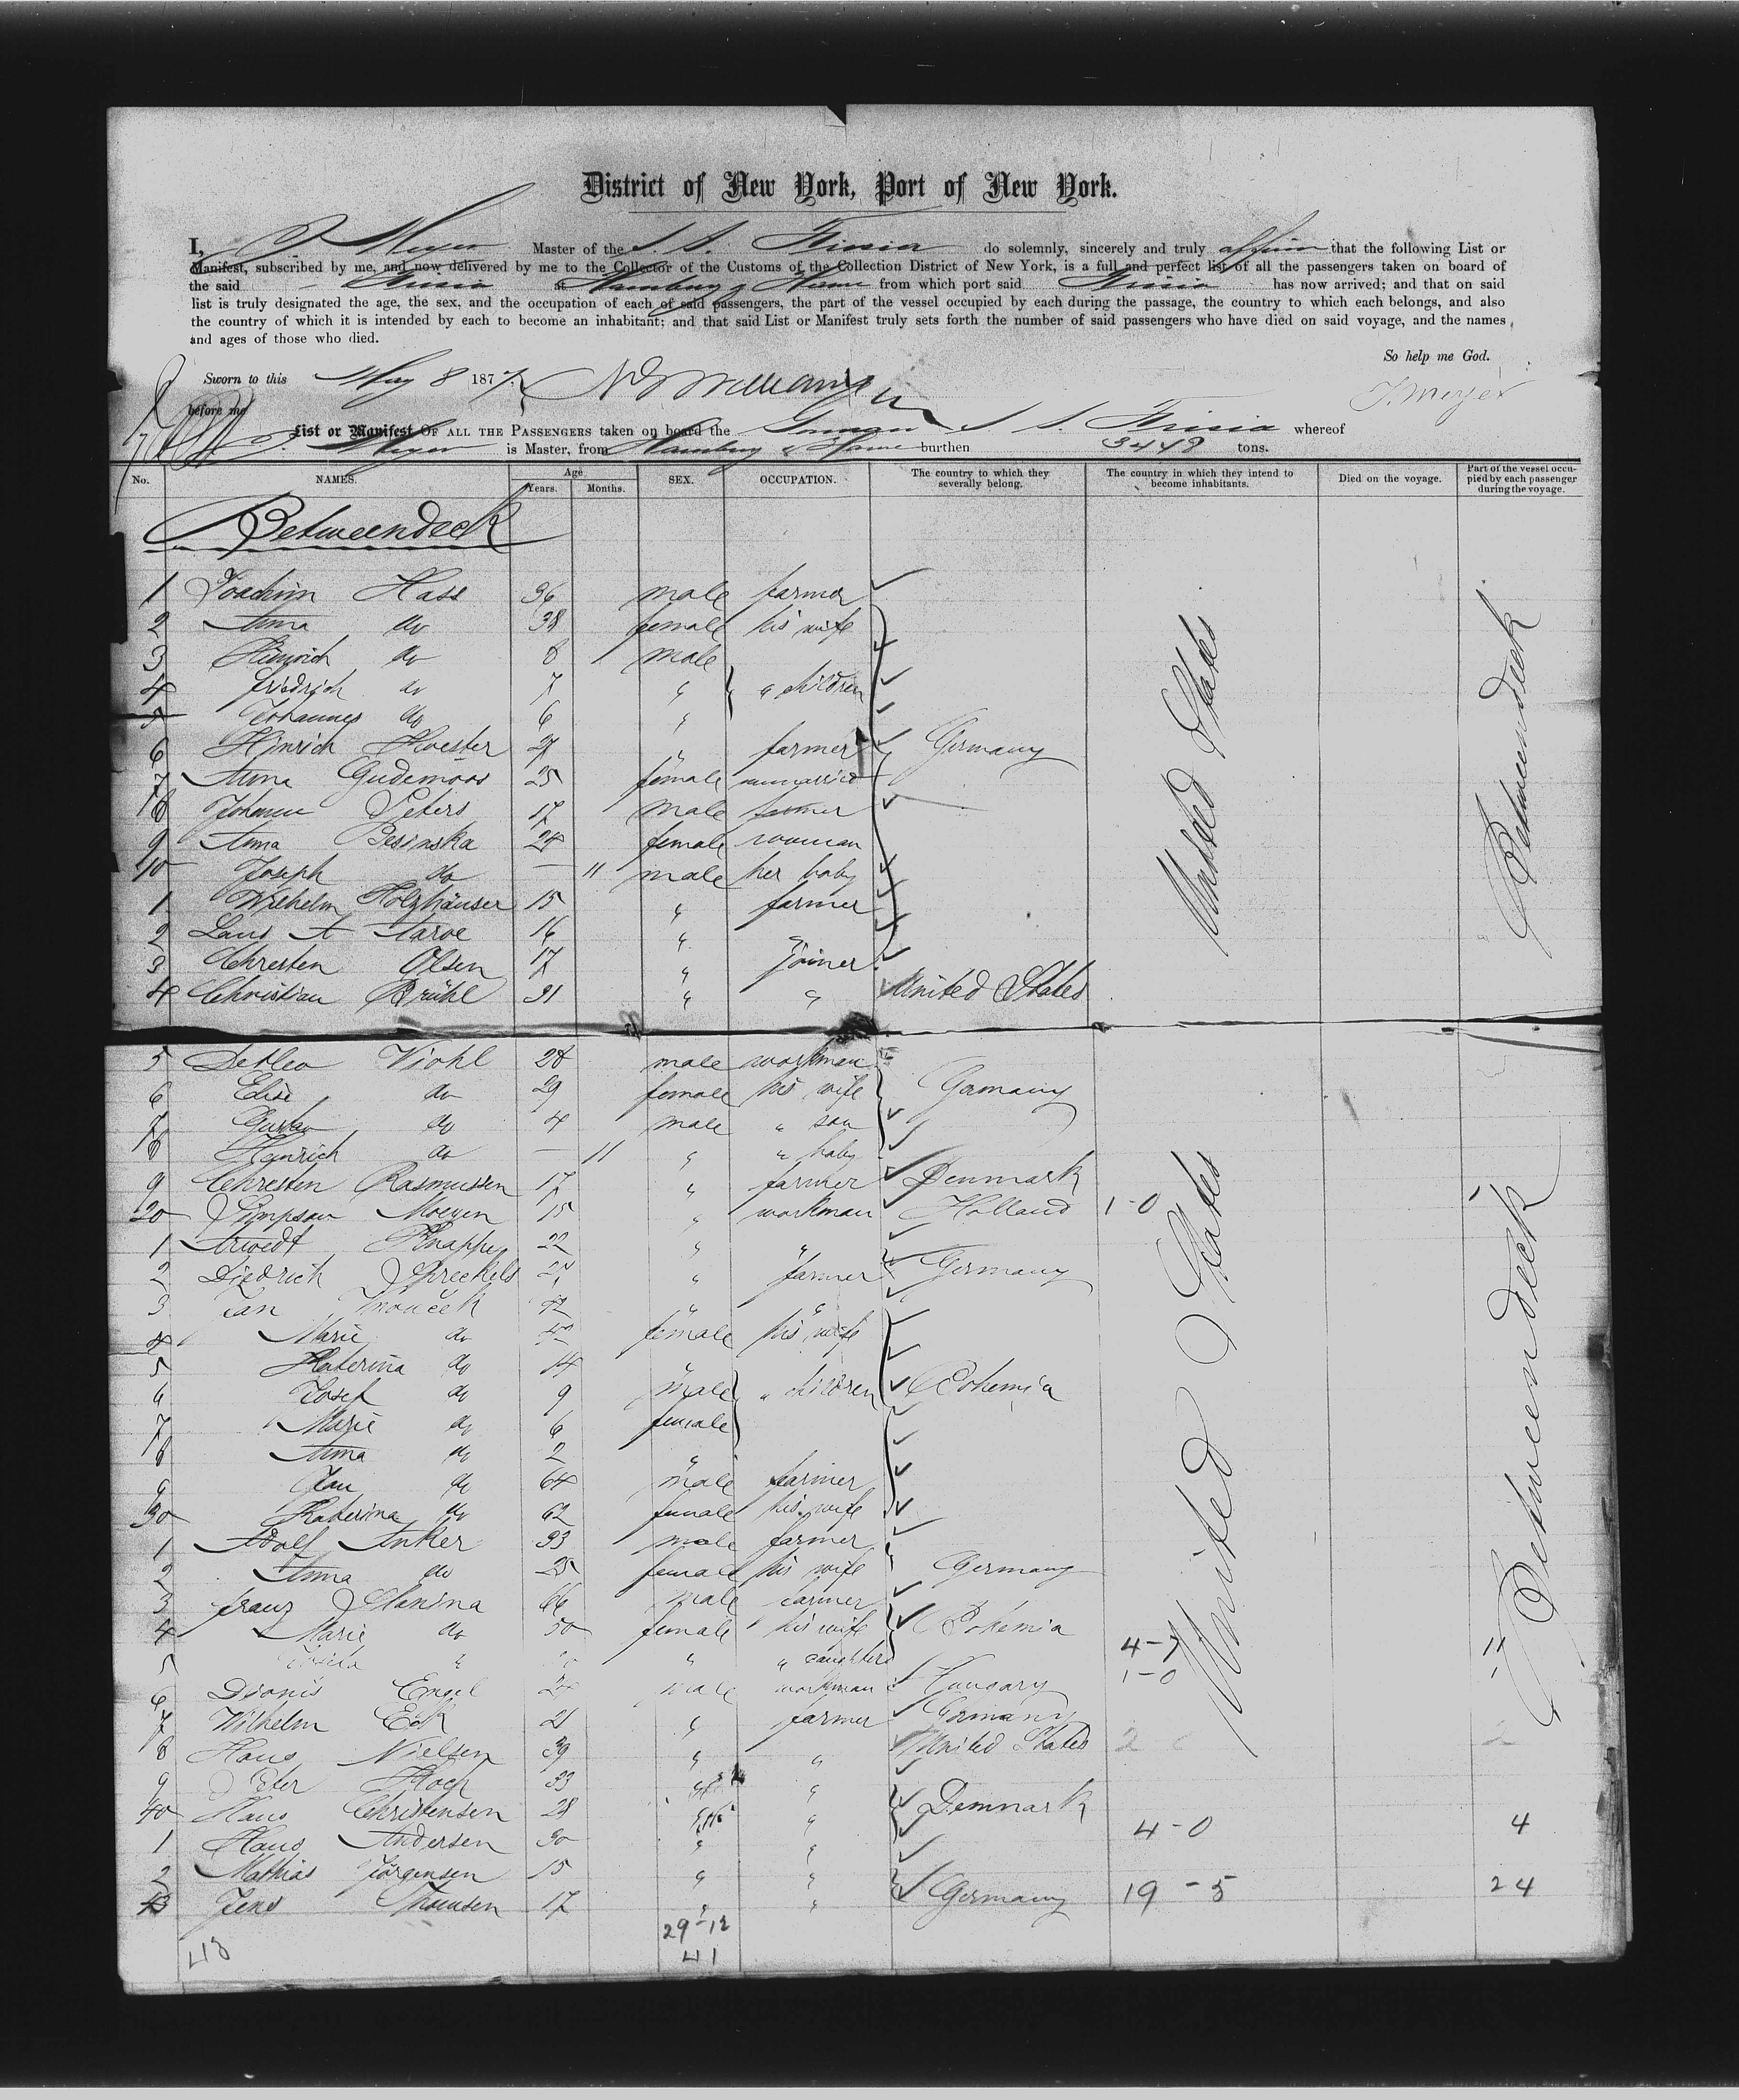 District of New York, Port of New York.
I, J Meyer Master of the S. S. Frisia do solemnly, sincerely and truly affirm that the following List or
Manifest, subscribed by me, and now delivered by me to the Collector of the Customs of the Collection District of New York, is a full and perfect list of all the passengers taken on board of
the said Frisia at Hamburg & Havre from which port said Frisia has now arrived; and that on said
list is truly designated the age, the sex, and the occupation of each of said passengers, the part of the vessel occupied by each during the passage, the country to which each belongs, and also
the country of which it is intended by each to become an inhabitant; and that said List or Manifest truly sets forth the number of said passengers who have died on said voyage, and the names
and ages of those who died.
So help me God.
Sworn to this May 8 1877.
before me
J. Meyer
List or Manifest OF ALL THE PASSENGERS taken on board the German S S. Frisia whereof
J. Meyer is Master, from Hamburg & Havre burthen 3448 tons.
No. NAMES. Age. Years. Months. SEX. OCCUPATION. The country to which they severally belong. The country in which they intend to become inhabitants. Died on the voyage. Part of the vessel occupied by each passenger during the voyage.
Betweendeck
1 Joachim Hass 36 male farmer
2 Anna do 38 female his wife
3 Hinrich do 8 male
4 Friedrich do 7 " " children
5 Johannes do 6 "
6 Hinrich Hoester 27 " farmer Germany
7 Anna Gudemoos 25 female unmarried
8 Johann Peters 17 male farmer
9 Anna Besinska 24 female woman
10 Joseph do — 11 male her baby
1 Wilhelm Holzhäuser 15 " farmer
2 Laus A Aaroe 16 " "
3 Chresten Olsen 17 " joiner
4 Christian Brühl 31 " " United States
United States
Betweendeck
5 Detlev Viohl 28 male workman
6 Elise do 29 female his wife Germany
7 Gustav do 4 male " son
8 Heinrich do — 11 " " baby
9 Chresten Rasmussen 17 " farmer Denmark
20 Simpson Moeyen 15 " workman Holland 1-0
1 Arwedt Knappe 22 " "
2 Diedrich Spreckels 27 " farmer Germany
3 Jan 42 " "
4 Marie do 42 female his wife
5 Katerina do 14 "
6 Josef do 9 male " children Bohemia
7 Marie do 6 female
8 Anna do 2 "
9 Jan do 64 male farmer
30 Katerina do 62 female his wife
1 Adolf Anker 33 male farmer
2 Anna do 25 female his wife Germany
3 Franz Slanina 66 male farmer
4 Marie do 50 female his wife Bohemia 4-7 11
5 " " " daughter 1-0 1
6 Dionis Engel 24 male workman Hungary
7 Wilhelm Eck 21 " farmer Germany
8 Hans Nielsen 39 " " United States 2
9 Peter Koch 33 "
40 Hans Christensen 28 " Denmark
1 Hans Andersen 30 " " 4-0 4
2 Mathias Jörgensen 15 " "
43 Jens Thomsen 17 " " Germany 19-5 24
United States
Betweendeck
29-12
43 41